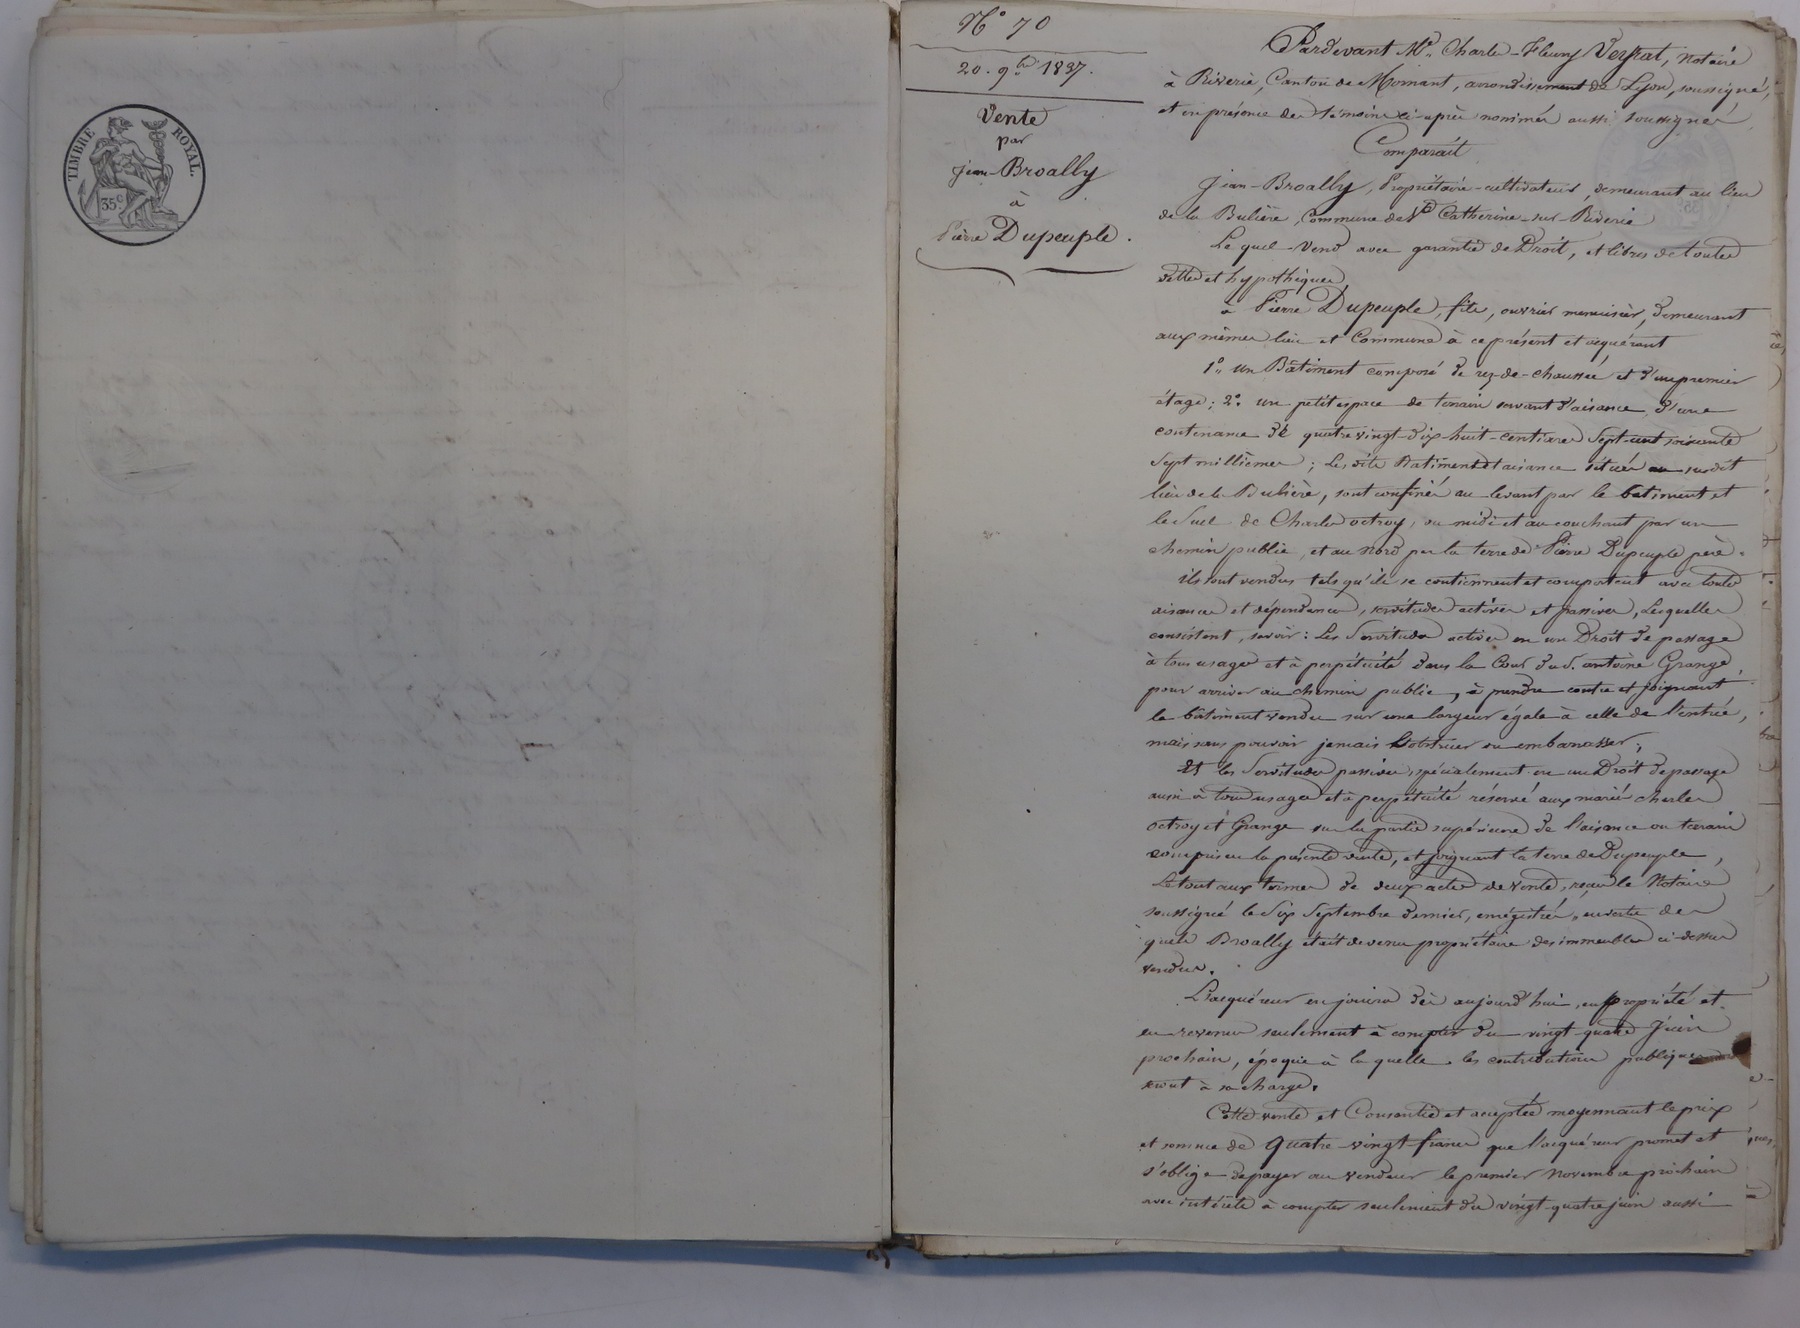 TIMBRE ROYAL.
35c
N° 70
20. 9bre 1837.
Vente
par
Jean-Broally
à
Pierre Dupeuple.
Pardevant Me. Charles-Fleury Veyrat, notaire
à Riverie, Canton de Mornant, arrondissement de Lyon, soussigné,
et en présence des témoins ci-après nommés aussi soussignés
Comparait
Jean-Broally, Propriétaire-cultivateur, demeurant au lieu
de la Bulière, Commune de Ste Catherine-sur-Riverie
Lequel-Vend avec garantie de Droit, et libres de toutes
dettes et hypothèques
à Pierre Dupeuple, fils, ouvrier menuisier, demeurant
aux mêmes lieu et Commune à ce présent et requérant
1°. un Bâtiment composé de rez-de-chaussée et d'un premier
étage; 2°. un petit espace de terrain servant d'aisance, d'une
contenance de quatre vingt-dix-huit-centiares Sept-cent soixante
Sept millièmes; Lesdits Batiment et aisance situés au susdit
lieu de la Bulière, sont confinés au levant par le batiment et
le Suel de Charles octroy, au midi et au couchant par un
chemin public, et au Nord par la terre de Pierre Dupeuple père.
ils sont vendus tels qu'ils se contiennent et comportent avec toutes
aisances et dépendances, servitudes actives et passives, Lesquelles
consistent, savoir: Les Servitudes actives en un Droit de passage
à tous usages et à perpétuité dans la Cour du S. antoine Grange,
pour arriver au chemin public, à prendre contre et joignant
le bâtiment vendu sur une largeur égale à celle de l'entrée,
mais sans pouvoir jamais l'obstruer ou embarrasser;
Et les Servitudes passives, spécialement en un Droit de passage
aussi à tous usages et à perpétuité réservé aux mariés charles
octroy et Grange sur la partie supérieure de l'aisance ou terrain
compris en la présente vente, et joignant la terre de Dupeuple,
Le tout aux termes de deux actes de vente, reçus le Notaire
soussigné le Six Septembre dernier, enregistrés, en vertu des
quels Broally était devenu propriétaire des immeubles ci-dessus
vendus.
L'acquéreur en jouira dès aujourd'hui, en propriété et
en revenus seulement à compter du vingt-quatre Juin
prochain, époque à laquelle les contributions publiques
seront à sa charge.
Cette vente et Consentie et acceptée moyennant le prix
et somme de quatre-vingt-francs que l'acquéreur promet et
s'oblige de payer au vendeur le premier Novembre prochain
avec intérêts à compter seulement du vingt-quatre juin aussi